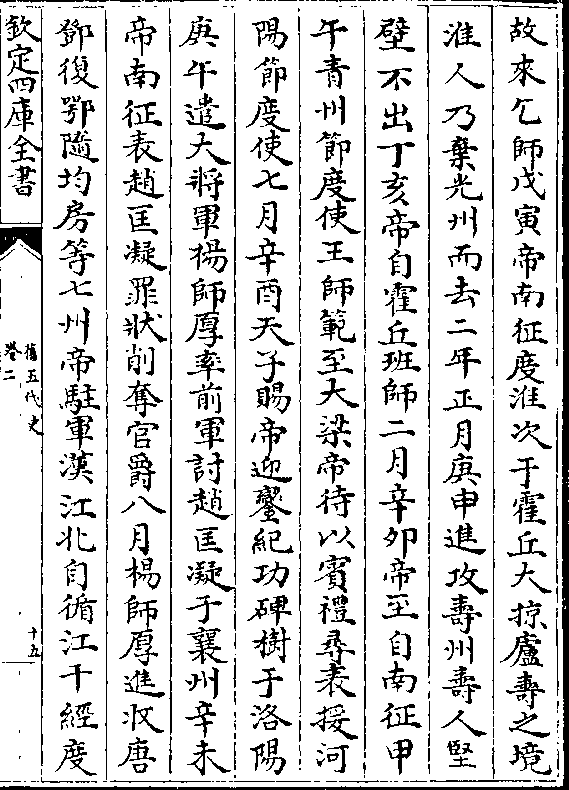 故來乞師戊寅帝南征度淮次于霍丘大掠廬壽之境
淮人乃棄光州而去二年正月庚申進攻壽州壽人堅
壁不出丁亥帝自霍丘班師二月辛卯帝至自南征甲
午青州節度使王師範至大梁帝待以賓禮尋表授河
陽節度使七月辛酉天子賜帝迎鑾紀功碑樹于洛陽
庚午遣大將軍楊師厚率前軍討趙匡凝于襄州辛未
帝南征表趙匡凝罪狀削奪官爵八月楊師厚進收唐
鄧復鄂隨均房等七州帝駐軍漢江北自循江干經度
欽定四庫全書
舊五代史
卷二
十五